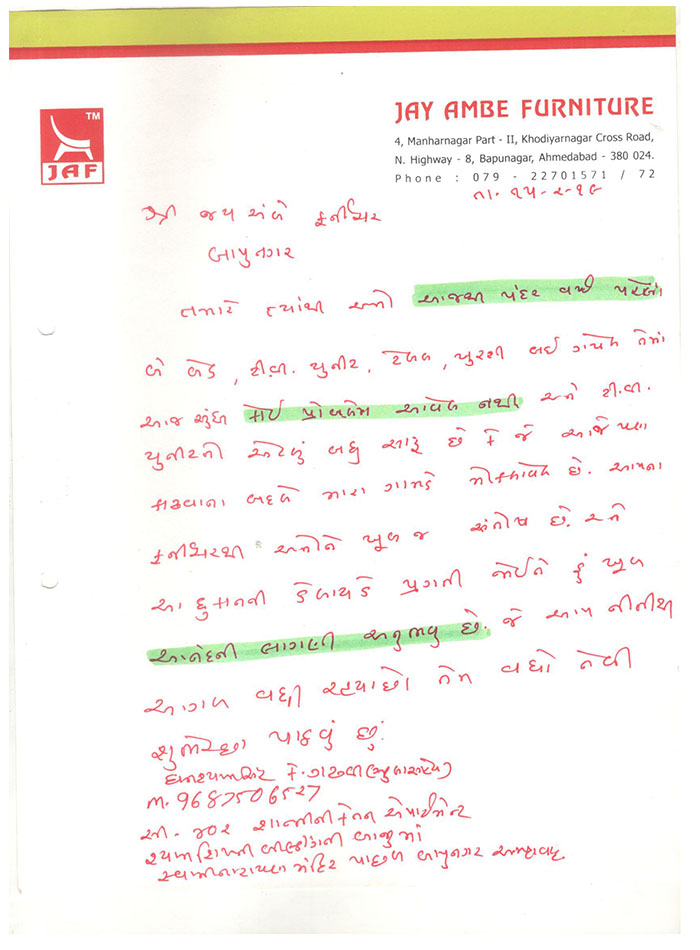 TM
JAF
JAY AMBE FURNITURE
4, Manharnagar Part - II, Khodiyarnagar Cross Road,
N. Highway - 8, Bapunagar, Ahmedabad - 380 024.
Phone : 079 - 22701571 / 72
તા. ૧૫-૨-૧૬
શ્રી જય અંબે ફર્નીચર
બાપુનગર
તમારે ત્યાંથી અમો આજથી પંદર વર્ષ પહેલાં
બે બેડ, ટી.વી. યુનીટ, ટેબલ, ખુરશી લઈ ગયેલ તેમાં
આજ સુધી કોઈ પ્રોબલેમ આવેલ નથી અને ટી.વી.
યુનીટની એટલું બધુ સારૂ છે કે જે આજે પણ
બદલે મારા ગામડે મોકલાવેલ છે. આપના
ફર્નીચરથી અમોને ખુબ જ સંતોષ છે. અને
આ દુકાનની પ્રગતી જોઈને હું ખુબ
આનંદની લાગણી અનુભવુ છું. જે આપ નીતીથી
આગળ વધી રહ્યાછો તેમ વધો તેવી
શુભેચ્છા પાઠવું છું.
ઘનશ્યામસિંહ કે. ગઢવી
M. 9687506527
૪૦૨ એપાર્ટમેન્ટ
બાજુમાં
સ્વામીનારાયણ મંદિર પાછળ બાપુનગર અમદાવાદ